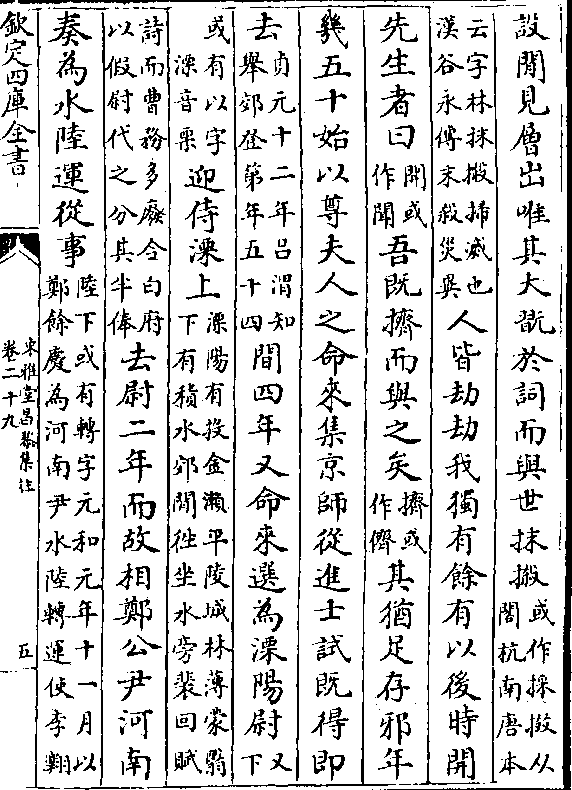 設閒見層出唯其大翫於詞而與世抹摋或作採摋从閣杭南唐本
云字林抹摋掃滅也漢谷永傳末殺災異人皆劫劫我獨有餘有以後時開
先生者曰開或作聞吾既擠而與之矣擠或作儕其猶足存邪年
幾五十始以尊夫人之命來集京師從進士試既得即
去貞元十二年吕渭知舉郊登第年五十四間四年又命來選為溧陽尉又下
或有以字溧音栗迎侍溧上溧陽有投金瀨平陵城林薄蒙翳下有積水郊間徃坐水旁裴回賦
詩而曹務多廢令白府以假尉代之分其半俸去尉二年而故相鄭公尹河南
奏為水陸運從事陸下或有轉字元和元年十一月以鄭餘慶為河南尹水陸轉運使李翺
欽定四庫全書
東雅堂昌黎集註
卷二十九
五